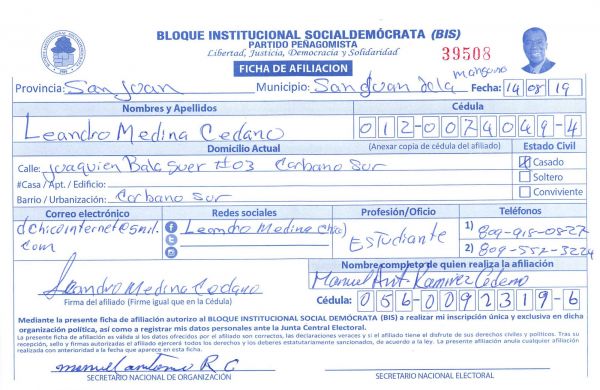 BLOQUE INSTITUCIONAL SOCIALDEMÓCRATA (BIS)
PARTIDO PEÑAGOMISTA
Libertad, Justicia, Democracia y Solidaridad
39508
FICHA DE AFILIACION
Provincia: San Juan Municipio: San Juan dela maguana Fecha: 14 08 19
Nombres y Apellidos Cédula
Leandro Medina Cedano 012-0074049-4
Domicilio Actual (Anexar copia de cédula del afiliado) Estado Civil
Calle: Joaquien Balaguer #03 Corbano Sur Casado
#Casa / Apt. / Edificio: Soltero
Barrio / Urbanización: Corbano Sur Conviviente
Correo electrónico Redes sociales Profesión/Oficio Teléfonos
dchicointernet@gmil.com Leandro Medina (chico) Estudiante 1) 809-918-0827
2) 809-552-3224
Nombre completo de quien realiza la afiliación
Leandro Medina Cedano Manuel Ant. Ramirez Cedeno
Firma del afiliado (Firme igual que en la Cédula) Cédula: 056-0092319-6
Mediante la presente ficha de afiliación autorizo al BLOQUE INSTITUCIONAL SOCIAL DEMÓCRATA (BIS) a realizar mi inscripción única y exclusiva en dicha
organización política, así como a registrar mis datos personales ante la Junta Central Electoral.
La presente ficha de afiliación es válida si los datos ofrecidos por el afiliado son correctos, las declaraciones veraces y si el afiliado tiene el disfrute de sus derechos civiles y políticos. Tras su
recepción, sello y firmas autorizadas el afiliado ejercerá todos los derechos y los deberes estatutariamente sancionados, de acuerdo a la ley. La presente afiliación anula cualquier afiliación
realizada con anterioridad a la fecha que aparece en esta ficha.
manuel antonio R C
SECRETARIO NACIONAL DE ORGANIZACIÓN SECRETARIO NACIONAL ELECTORAL